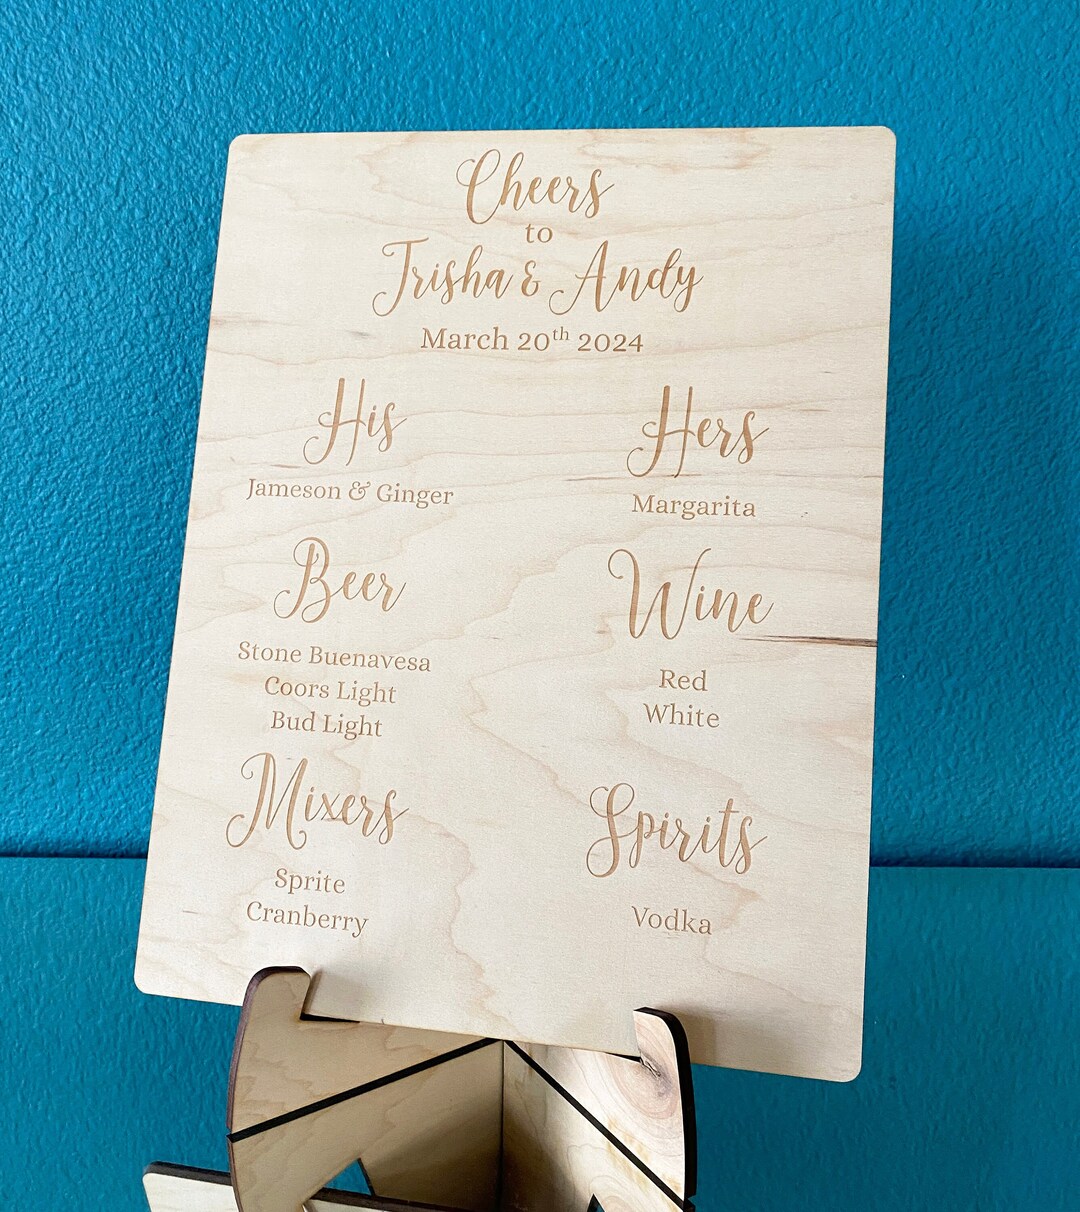 Cheers
to
Trisha & Andy
March 20th 2024
His
Jameson & Ginger
Hers
Margarita
Beer
Stone Buenavesa
Coors Light
Bud Light
Wine
Red
White
Mixers
Sprite
Cranberry
Spirits
Vodka